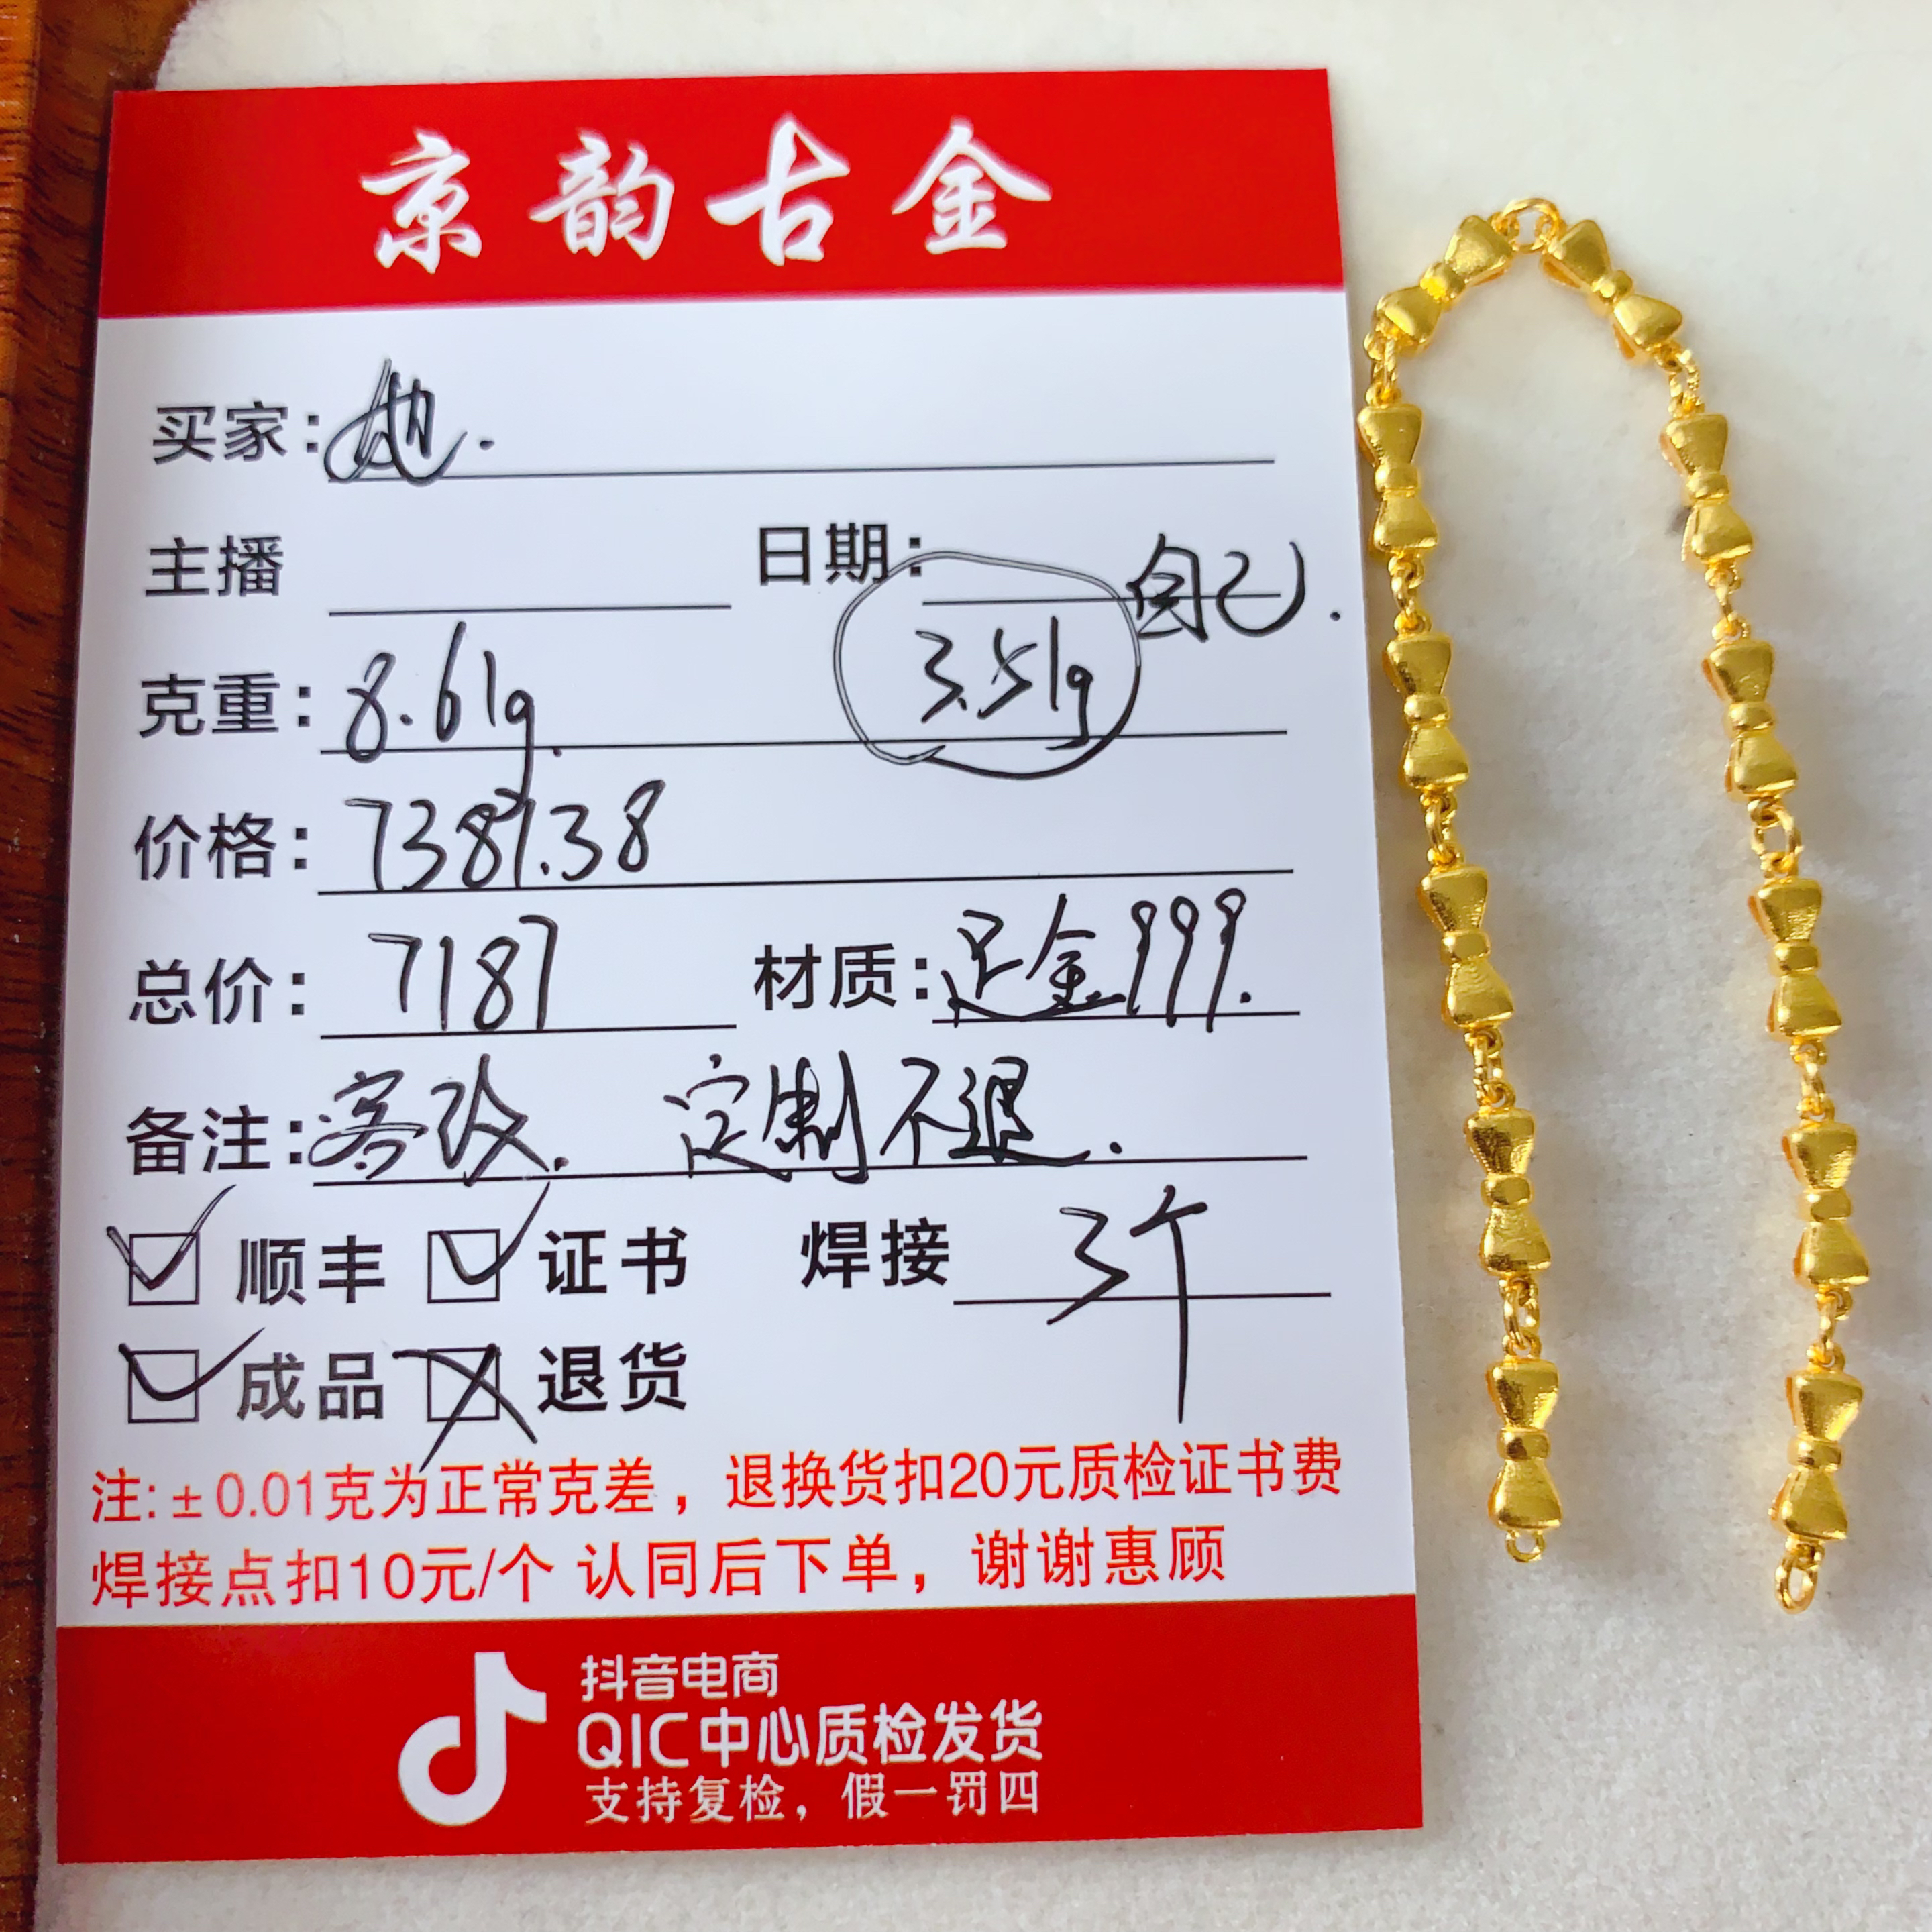 京韵古金
买家：她.
主播 日期： 自己.
克重：8.61g. 3.51g
价格：7381.38
总价：7187 材质：足金999.
备注：客改. 定制不退.
顺丰 证书 焊接 3个
成品 退货
注:±0.01克为正常克差，退换货扣20元质检证书费
焊接点扣10元/个 认同后下单，谢谢惠顾
抖音电商
QIC中心质检发货
支持复检，假一罚四